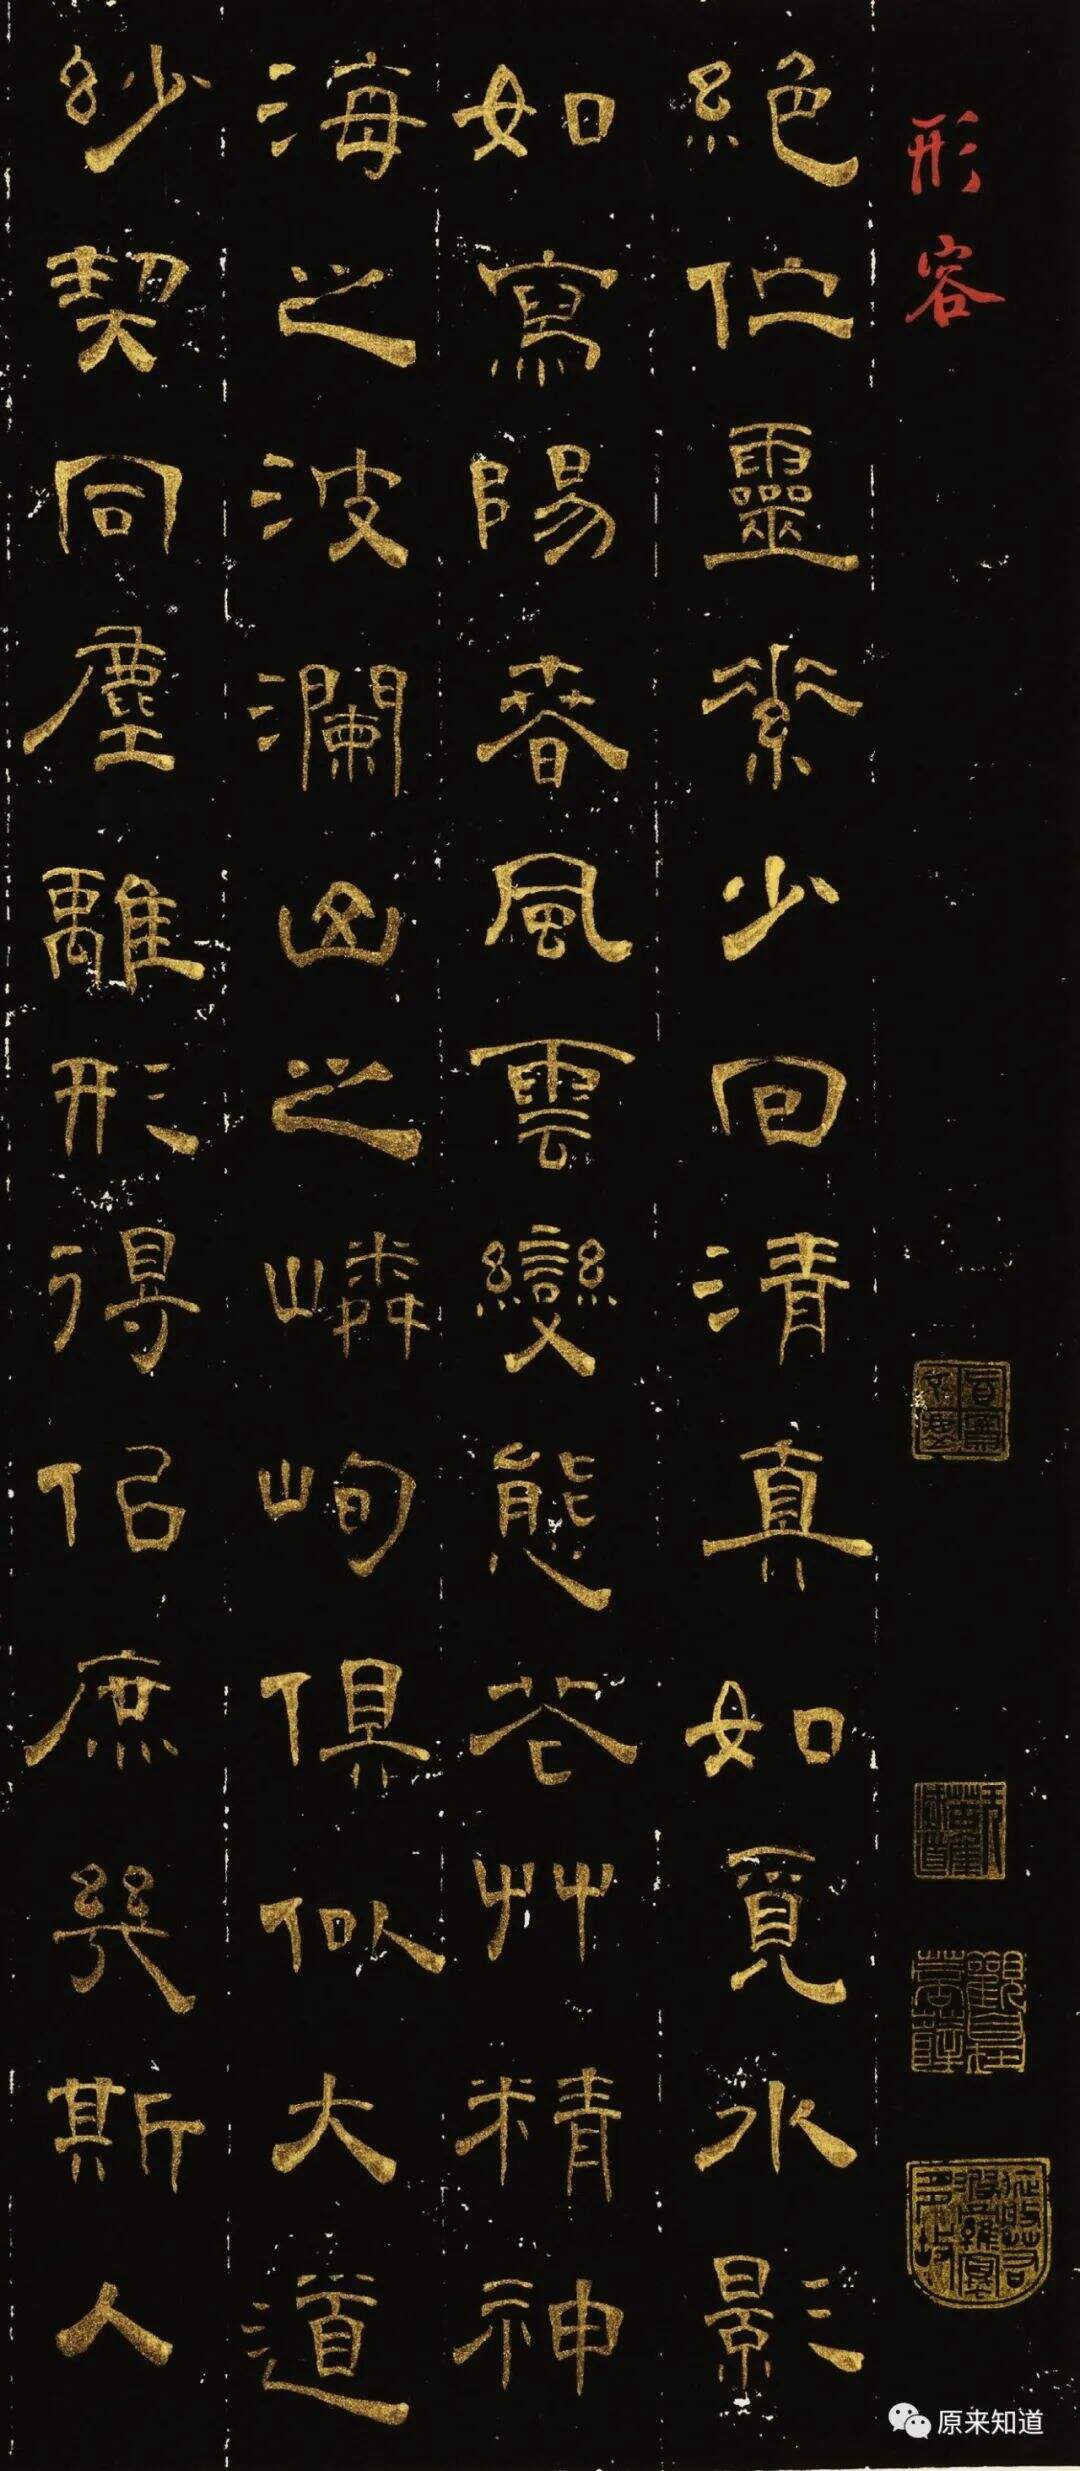 形容
絕佇靈素少回清真如覓水影
如寫陽春風雲變態花艸精神
海之波瀾山之嶙峋俱似大道
玅契同塵離形得佀庶幾斯人
觀自在菩薩
原来知道